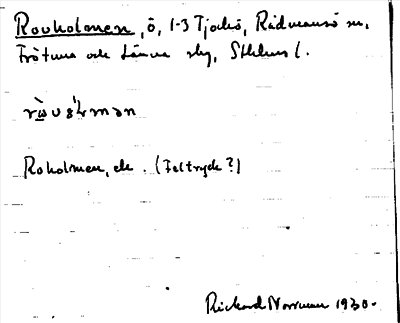 Rovholmen, ö, 1-3 Tjockö, Rådmansö sn,
Frötuna och Länna skg, Sthlms l.
Roholmen, ek. (Feltryck?)
Rickard Norrman 1930.